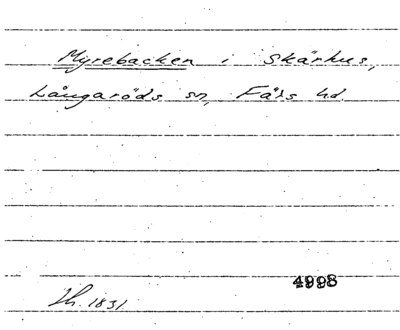 Myrebacken i Skärhus,
Långaröds sn, Färs hd.
4998
Th. 1831